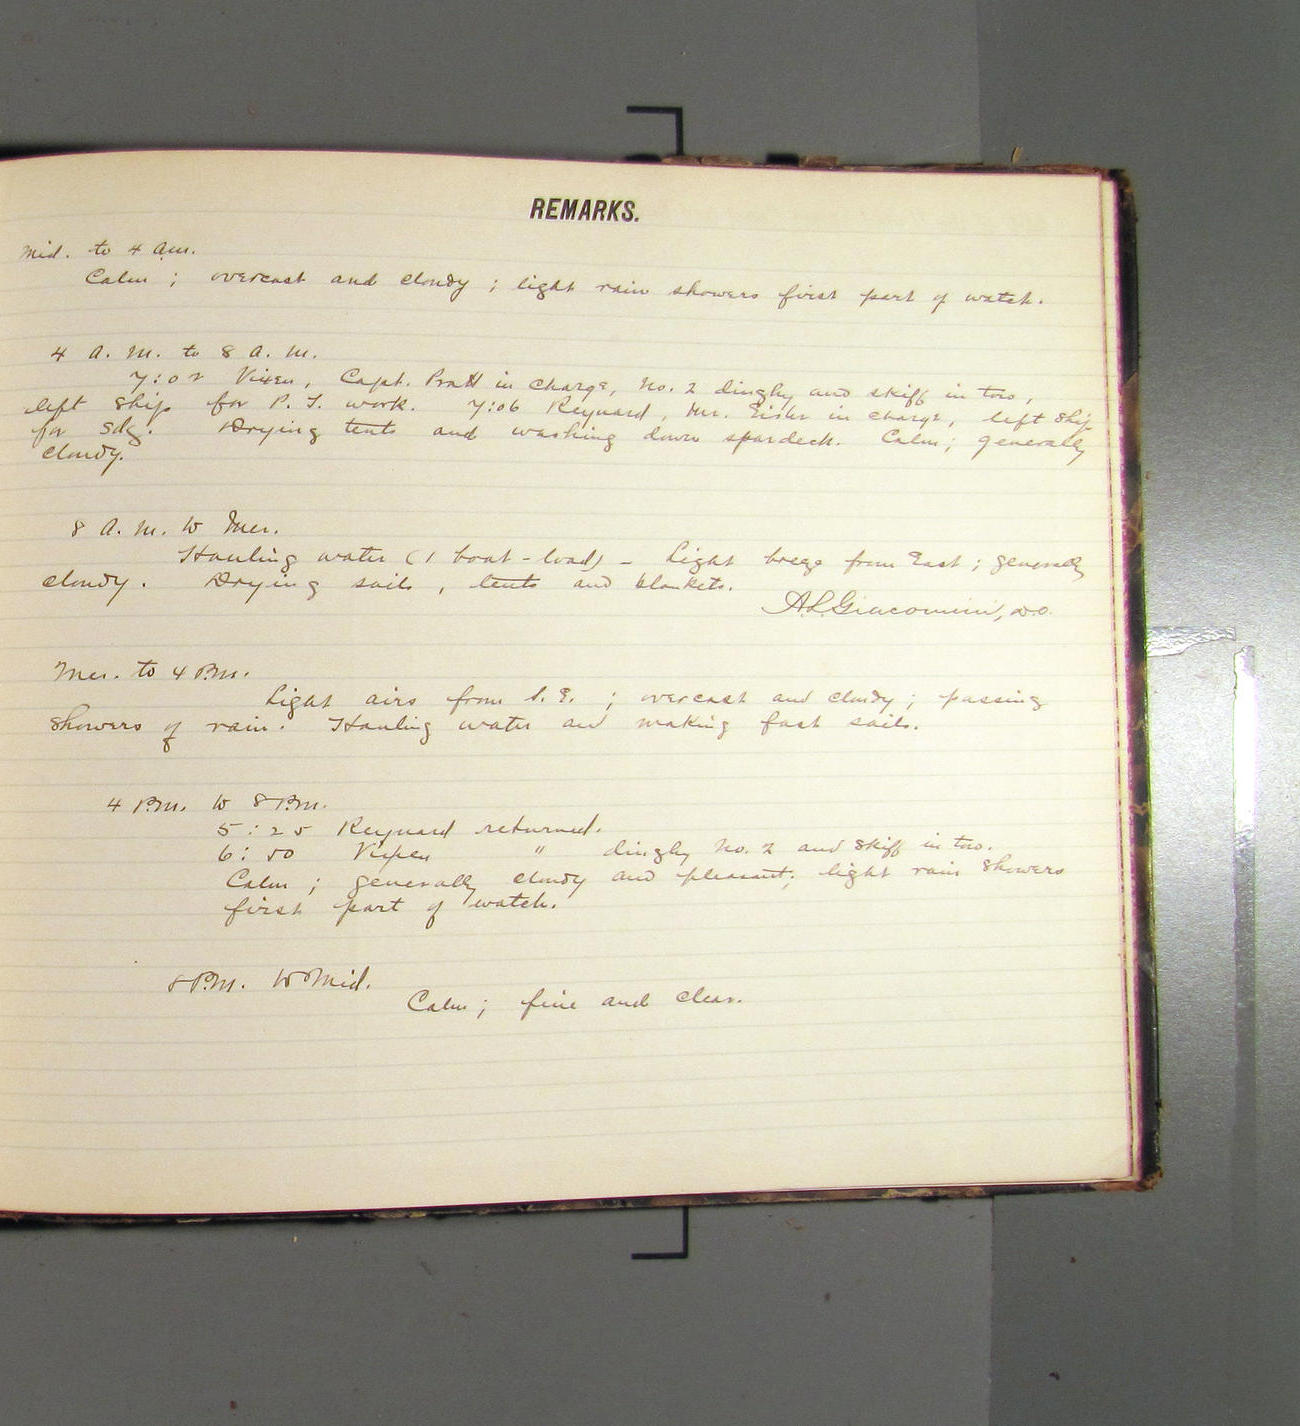 REMARKS.
Mid. to 4 a.m.
Calm ; overcast and cloudy ; light rain showers first part of watch.
4 A. M. to 8 A. M.
7:02 Vixen, Capt. Pratt in charge, No. 2 dinghy and skiff in tow,
left ship for P. S. work. 7:06 Reynard, Mr. in charge, left ship
for sdg. Drying tents and washing down spardeck. Calm ; generally
cloudy.
8 A. M. to Mer.
Hauling water (1 boat-load) - Light breeze from East ; generally
cloudy. Drying sails, tents and blankets.
A.L. Giacomini, W.O.
Mer. to 4 P.M.
Light airs from S. E. ; overcast and cloudy ; passing
showers of rain. Hauling water and making fast sails.
4 P.M. to 8 P.M.
5:25 Reynard returned.
6:50 Vixen " dinghy No. 2 and skiff in tow.
Calm ; generally cloudy and pleasant; light rain showers
first part of watch.
8 P.M. to Mid.
Calm ; fine and clear.